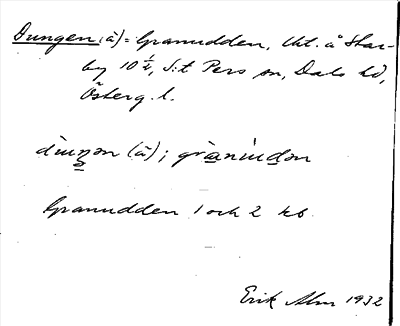 Dungen (å) = Granudden, lht. å Skar-
by 10 ½, S:t Pers sn, Dals hd,
Österg. l.
dùŋən (å); grànúdən
Granudden 1 och 2 kb
Erik Alm 1932